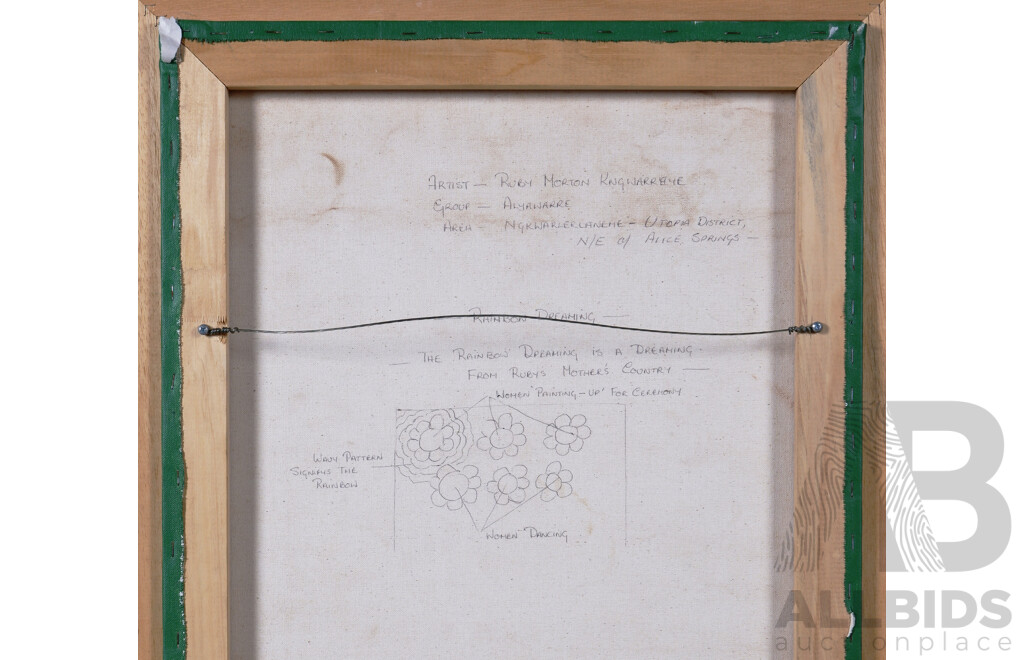 ARTIST — RUBY MORTON KNGWARREYE
GROUP — ALYAWARRE
AREA — — UTOPIA DISTRICT,
N/E O/ ALICE SPRINGS —
— RAINBOW DREAMING —
— THE RAINBOW DREAMING IS A DREAMING
FROM RUBYS MOTHER'S COUNTRY —
WOMEN 'PAINTING-UP' FOR CEREMONY
WAVY PATTERN
SIGNIFYS THE
RAINBOW
WOMEN DANCING
AB
ALLBIDS
auctionplace